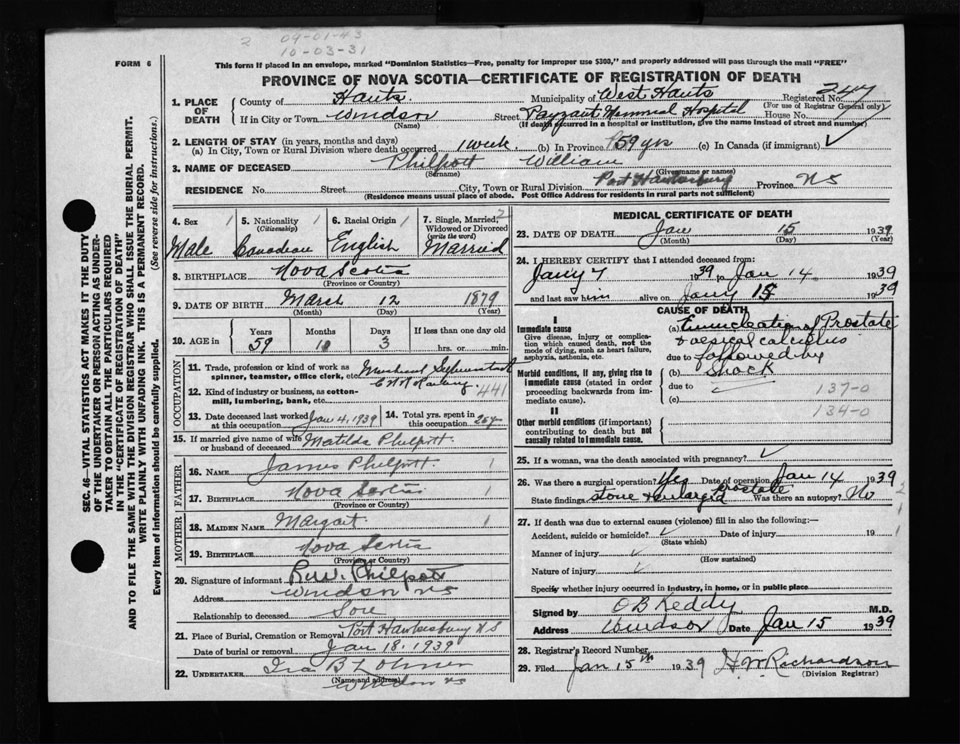 2 04-01-43
10-03-31
FORM 6
This form if placed in an envelope, marked "Dominion Statistics—Free, penalty for improper use $300," and properly addressed will pass through the mail "FREE"
PROVINCE OF NOVA SCOTIA—CERTIFICATE OF REGISTRATION OF DEATH
SEC. 46—VITAL STATISTICS ACT MAKES IT THE DUTY
OF THE UNDERTAKER OR PERSON ACTING AS UNDER-
TAKER TO OBTAIN ALL THE PARTICULARS REQUIRED
IN THE "CERTIFICATE OF REGISTRATION OF DEATH"
AND TO FILE THE SAME WITH THE DIVISION REGISTRAR WHO SHALL ISSUE THE BURIAL PERMIT.
WRITE PLAINLY WITH UNFADING INK. THIS IS A PERMANENT RECORD.
Every item of information should be carefully supplied. (See reverse side for instructions.)
1. PLACE OF DEATH
County of Hants Municipality of West Hants Registered No. 247
(For use of Registrar General only)
If in City or Town Windsor Street Payzant Memorial Hospital House No.
(Name) (If death occurred in a hospital or institution, give the name instead of street and number)
2. LENGTH OF STAY (in years, months and days)
(a) In City, Town or Rural Division where death occurred 1 week (b) In Province 59 yrs (c) In Canada (if immigrant)
3. NAME OF DECEASED Philpott William
(Surname) (Given name or names)
RESIDENCE No. Street City, Town or Rural Division Port Hawkesbury Province NS
(Residence means usual place of abode. Post Office Address for residents in rural parts not sufficient)
4. Sex 1 Male
5. Nationality 1 (Citizenship) Canadian
6. Racial Origin 1 English
7. Single, Married, 2 Widowed or Divorced (write the word) Married
8. BIRTHPLACE Nova Scotia
(Province or Country)
9. DATE OF BIRTH March 12 1879
(Month) (Day) (Year)
10. AGE in Years Months Days If less than one day old
59 10 3 hrs. or min.
OCCUPATION
11. Trade, profession or kind of work as
spinner, teamster, office clerk, etc.
12. Kind of industry or business, as cotton-
mill, lumbering, bank, etc. 441
13. Date deceased last worked at this occupation Jan 4, 1939
14. Total yrs. spent in this occupation
15. If married give name of wife or husband of deceased Matilda Philpott
FATHER
16. NAME James Philpott 1
17. BIRTHPLACE Nova Scotia 1
(Province or Country)
MOTHER
18. MAIDEN NAME Margaret 1
19. BIRTHPLACE Nova Scotia
(Province or Country)
20. Signature of informant Philpott
Address Windsor NS
Relationship to deceased Son
21. Place of Burial, Cremation or Removal Port Hawkesbury N.S
Date of burial or removal Jan 18, 1939
22. UNDERTAKER Ira B
(Name and address) Windsor NS
MEDICAL CERTIFICATE OF DEATH
23. DATE OF DEATH Jan 15 1939
(Month) (Day) (Year)
24. I HEREBY CERTIFY that I attended deceased from:
Jany 7 1939 to Jan 14 1939
and last saw him alive on Jany 15 1939
CAUSE OF DEATH
I
Immediate cause
Give disease, injury or compli-
cation which caused death, not the
mode of dying, such as heart failure,
asphyxia, asthenia, etc.
(a) Enucleation of Prostate
& vesical calculus
due to followed by
Morbid conditions, if any, giving rise to
immediate cause (stated in order
proceeding backwards from
immediate cause).
(b) Shock
due to 137-0
(c)
134-0
II
Other morbid conditions (if important)
contributing to death but not
causally related to immediate cause.
25. If a woman, was the death associated with pregnancy?
26. Was there a surgical operation? Yes Date of operation Jan 14 1939
State findings stone & enlarged prostate Was there an autopsy? No 2
27. If death was due to external causes (violence) fill in also the following:— 1
Accident, suicide or homicide? Date of injury 19 1
(State which)
Manner of injury
(How sustained)
Nature of injury
Specify whether injury occurred in industry, in home, or in public place
Signed by O B Keddy M.D.
Address Windsor Date Jan 15 1939
28. Registrar's Record Number
29. Filed Jan 15th 1939 H. W. Richardson
(Division Registrar)